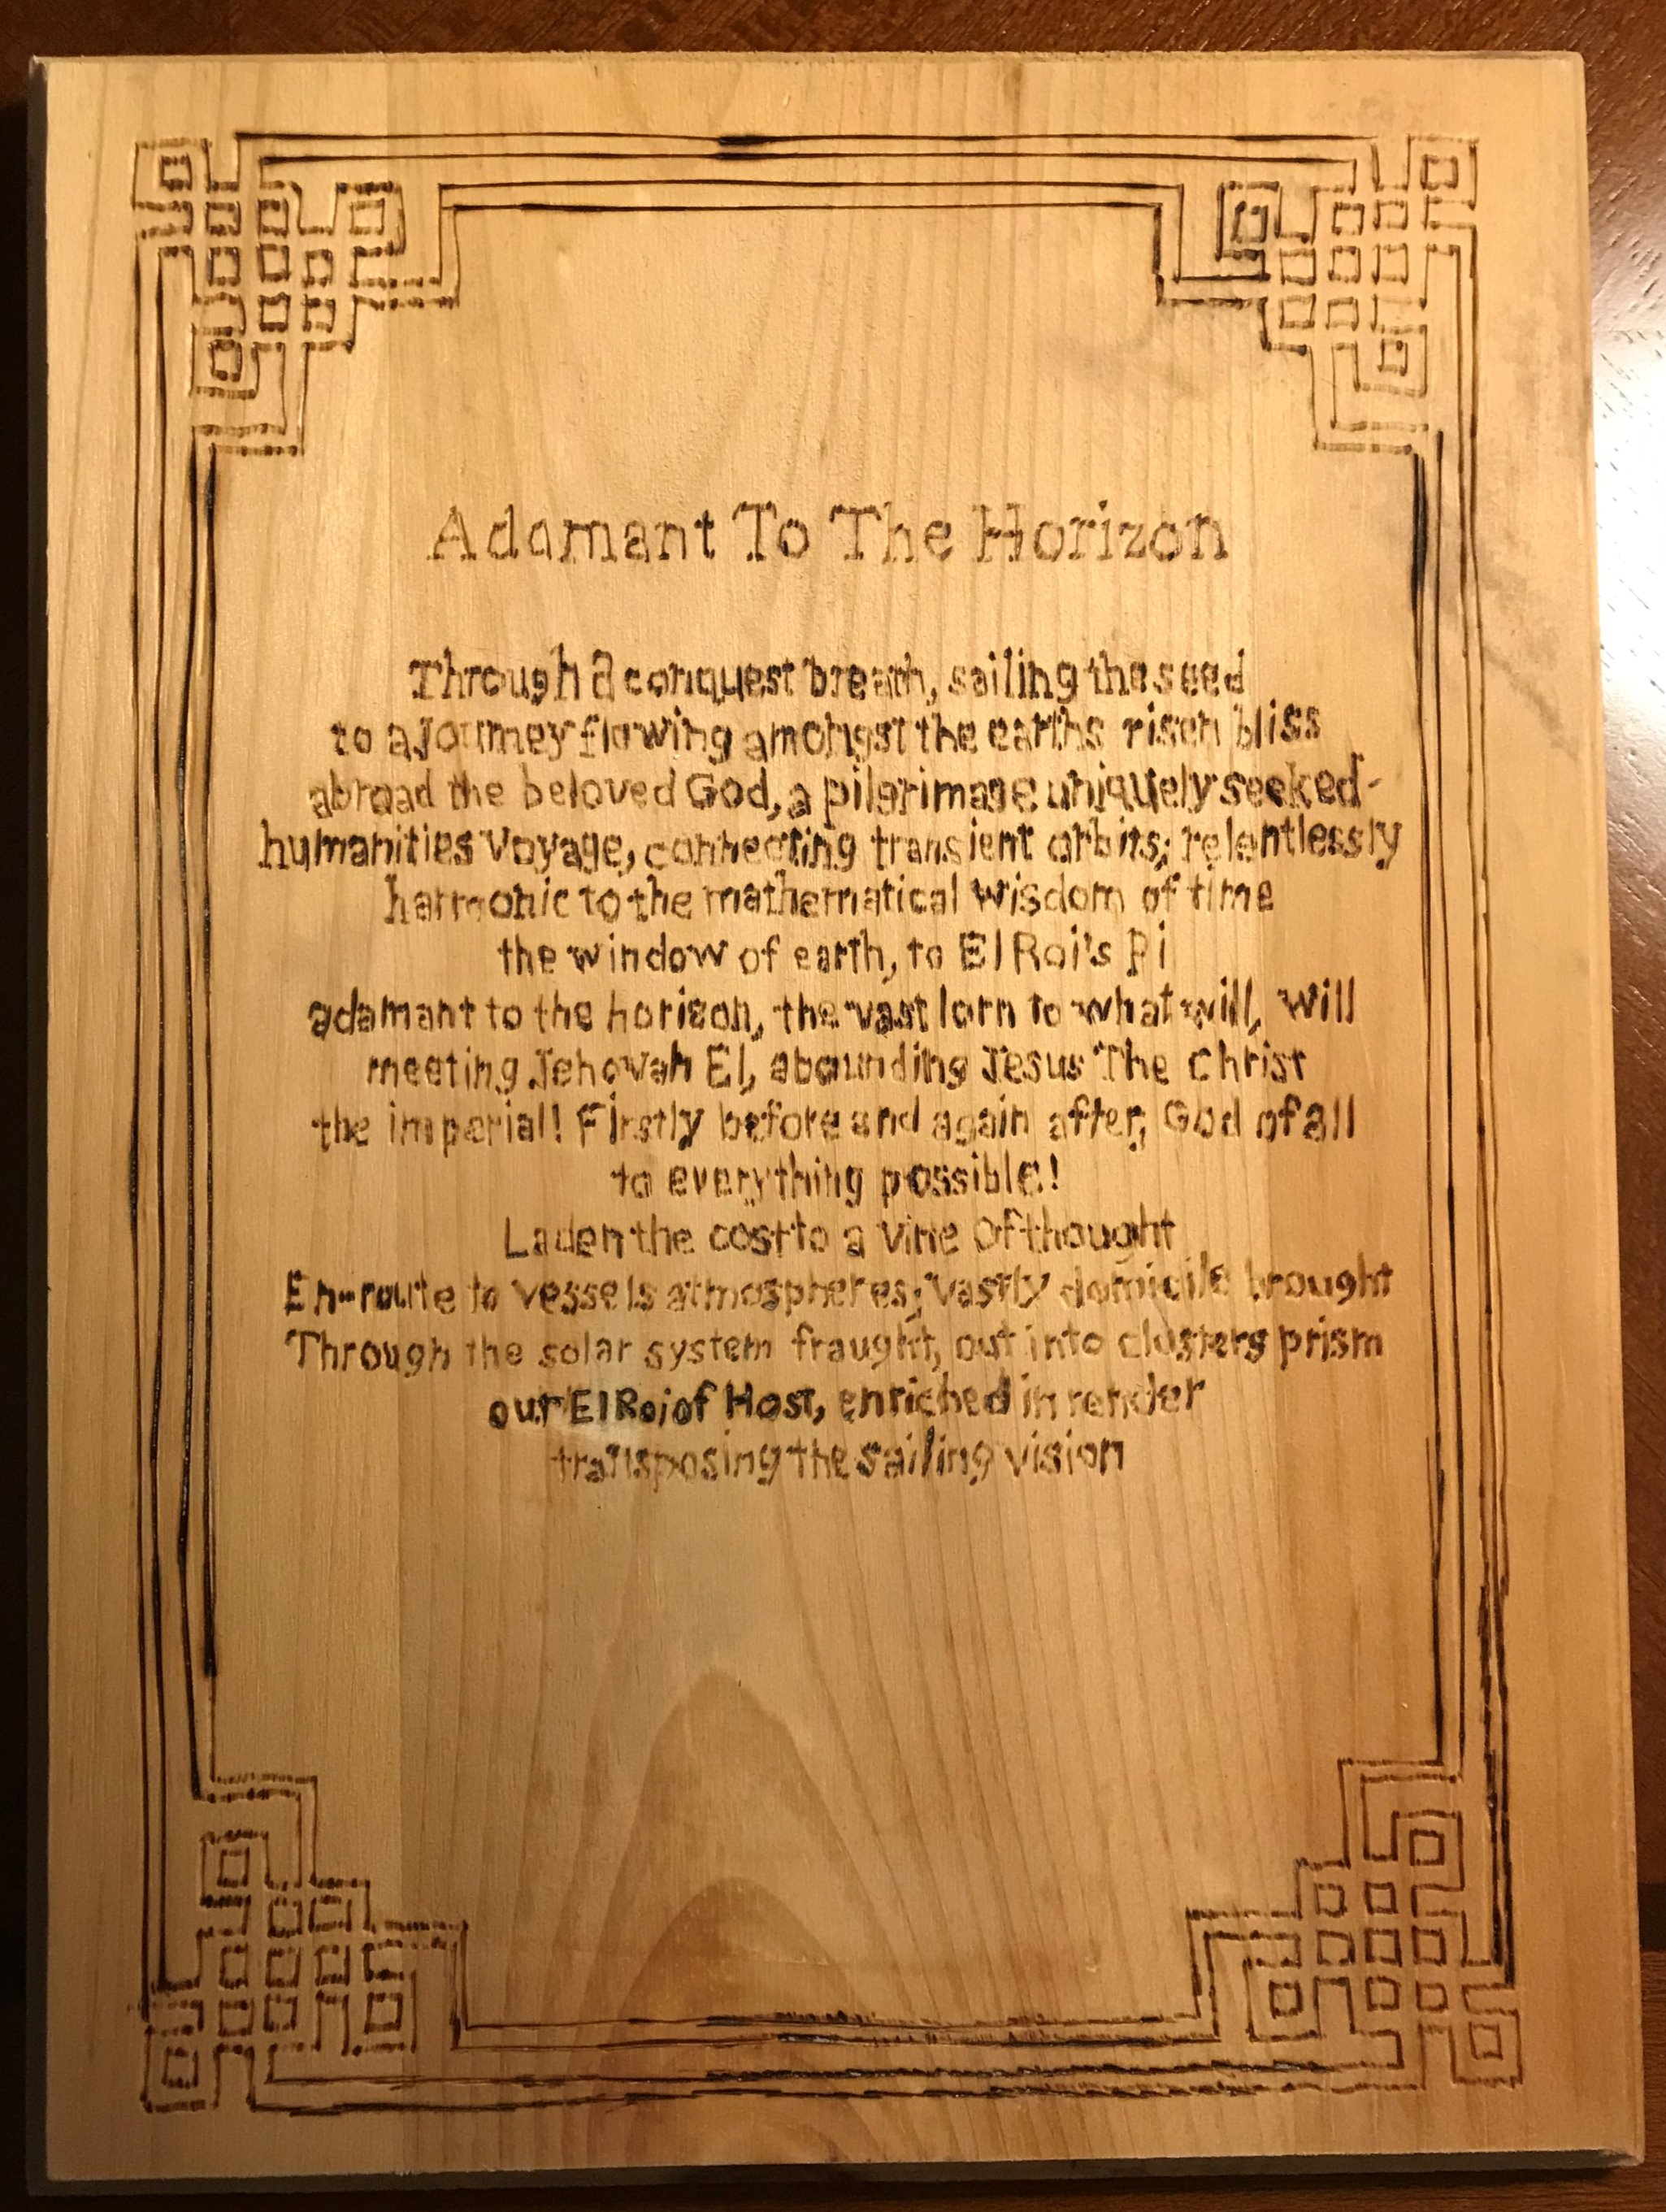 Adamant To The Horizon
Through a conquest breath, sailing the seed
to a journey flowing amongst the earths risen bliss
abroad the beloved God, a pilgrimage uniquely seeked-
humanities voyage, connecting transient orbits; relentlessly
harmonic to the mathematical wisdom of time
the window of earth, to El Roi's Pi
adamant to the horizon, the vast lorn to what will, will
meeting Jehovah El, abounding Jesus The Christ
the imperial! Firstly before and again after, God of all
to everything possible!
Laden the cost to a vine Of thought
En-route to vessels atmospheres; vastly domicile brought
Through the solar system fraught, out into clusters prism
our El Roi of Host, enriched in render
transposing the sailing vision